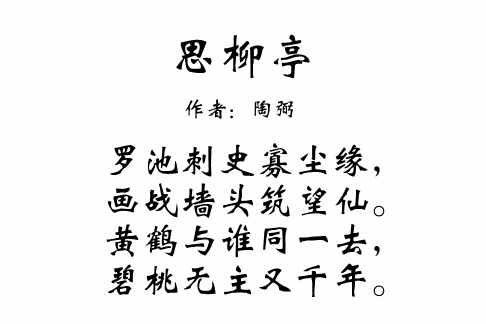 思柳亭
作者：陶弼
罗池刺史寡尘缘，
画战墙头筑望仙。
黄鹤与谁同一去，
碧桃无主又千年。